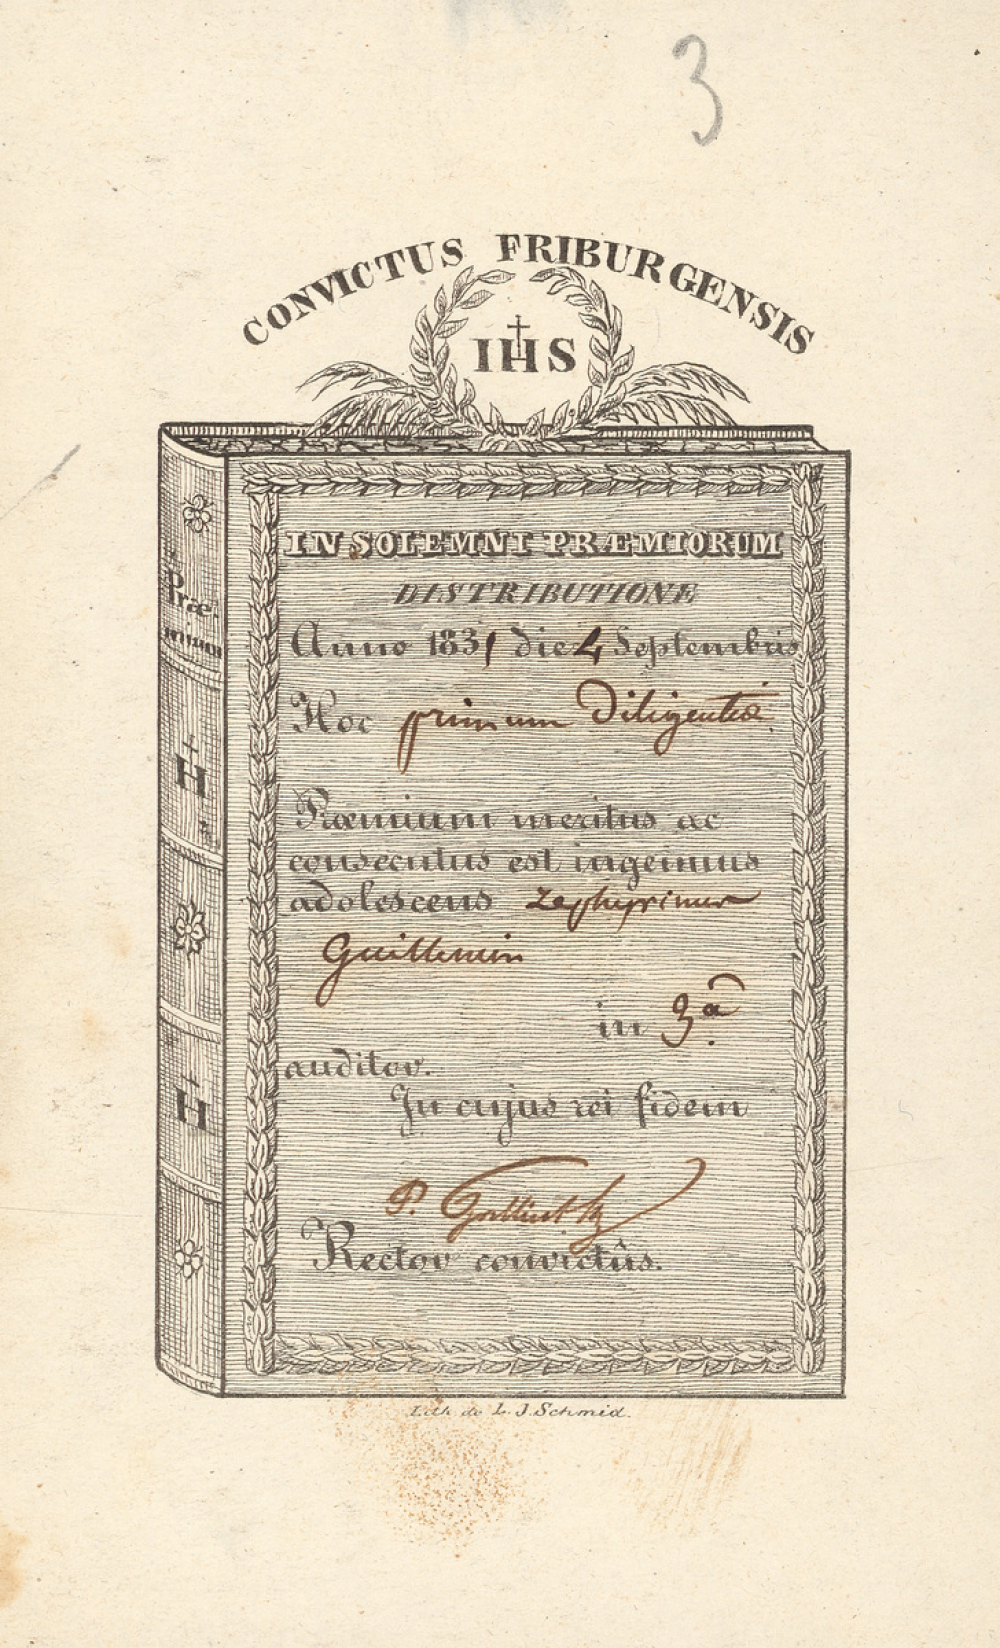 3
CONVICTUS FRIBURGENSIS
IHS
IN SOLEMNI PRÆMIORUM
DISTRIBUTIONE
Anno 1831 die 4 Septembris
Hoc primum Diligentiæ
Præmium meritus ac
consecutus est ingenuus
adolescens Zephyrinus
Guillemin
in 3ª
auditor.
In cujus rei fidem
P.
Rector convictûs.
Præ.
mium
H
H
Lith. de L. J. Schmid.